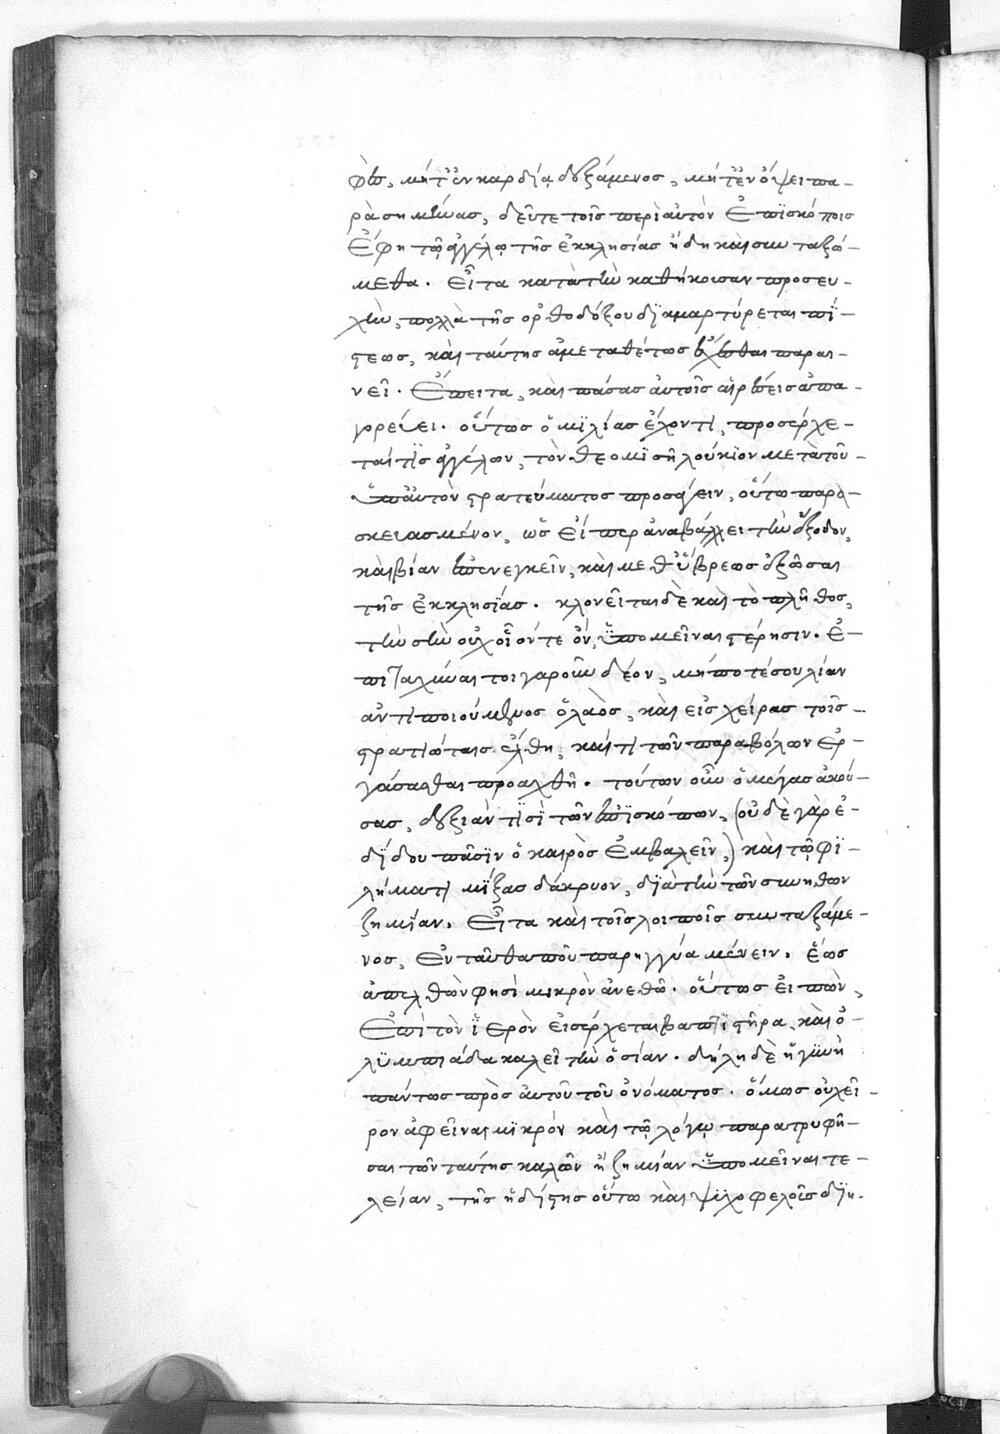 φὲν, μήτ' ἐν καρδίᾳ δεξάμενος, μήτ' ἐν ὄψει πα-
ρασημήνας, δεῦτε τοῖς περὶ αὐτὸν ἐπισκόποις
ἔφη τῷ ἀγγέλῳ τῆς ἐκκλησίας ἤδη καὶ συνταξώ-
μεθα. εἶτα κατὰ τὴν καθήκουσαν προσευ-
χὴν, πολλὰ τῆς ὀρθοδόξου διαμαρτύρεται πί-
στεως, καὶ ταύτης ἀμεταθέτως ἔχεσθαι παραι-
νεῖ. ἔπειτα, καὶ πάσας αὐτοῖς αἱρέσεις ἀπα-
γορεύει. οὕτως ὁμιλίας ἔχοντι, προσέρχε-
ταί τις ἀγγέλων, τὸν θεομισῆ λούκιον μετὰ τοῦ
ὑπ' αὐτὸν στρατεύματος προσάγειν, οὕτω παρε-
σκευασμένον, ὡς εἴπερ ἀναβάλλει τὴν ἔξοδον,
καὶ βίαν ἐπενεγκεῖν, καὶ μεθ' ὕβρεως ἐξῶσαι
τῆς ἐκκλησίας. κλονεῖται δὲ καὶ τὸ πλῆθος,
τὴν σὴν οὐχ οἷόν τε ὂν, ὑπομεῖναι στέρησιν. ἐ-
πιταχύναι τοιγαροῦν δέον, μήποτέ σου λίαν
ἀντιποιούμενος ὁ λαὸς, καὶ εἰς χεῖρας τοῖς
στρατιώταις ἔλθῃ, καί τι τῶν παραβόλων ἐρ-
γάσασθαι προαχθῇ. τούτων οὖν ὁ μέγας ἀκού-
σας, δεξιάν τισι τῶν ἐπισκόπων, (οὐδὲ γὰρ ἐ-
δίδου πᾶσιν ὁ καιρὸς ἐμβαλεῖν,) καὶ τῷ φι-
λήματι μίξας δάκρυον, διὰ τὴν τῶν συνήθων
ζημίαν. εἶτα καὶ τοῖς λοιποῖς συνταξάμε-
νος, ἐνταῦθά που παρηγγύα μένειν. ἕως
ἀπελθών φησι μικρὸν ἀνεθῶ. οὕτως εἰπὼν,
ἐπὶ τὸν ἱερὸν εἰσέρχεται βαπτιστῆρα, καὶ ὀ-
λυμπιάδα καλεῖ τὴν ὁσίαν. δήλη δὲ ἡ γυνὴ
πάντως πρὸς αὐτοῦ τοῦ ὀνόματος. ὅμως οὐ χεῖ-
ρον ἀφεῖναι μικρὸν καὶ τῷ λόγῳ παρατρυφῆ-
σαι τῶν ταύτης καλῶν ἢ ζημίαν ὑπομεῖναι τε-
λείαν, τῆς ἡδίστης οὕτω καὶ ψυχωφελοῦς διη-